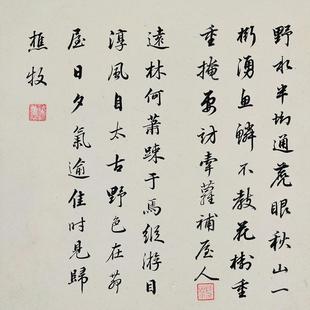 野水半坳通虎眼秋山一
湧魚鱗不教花樹重
重掩要訪牽蘿補屋人
遠林何蕭踈于焉縱游目
淳風自太古野色在茆
屋日夕氣逾佳時見歸
樵牧